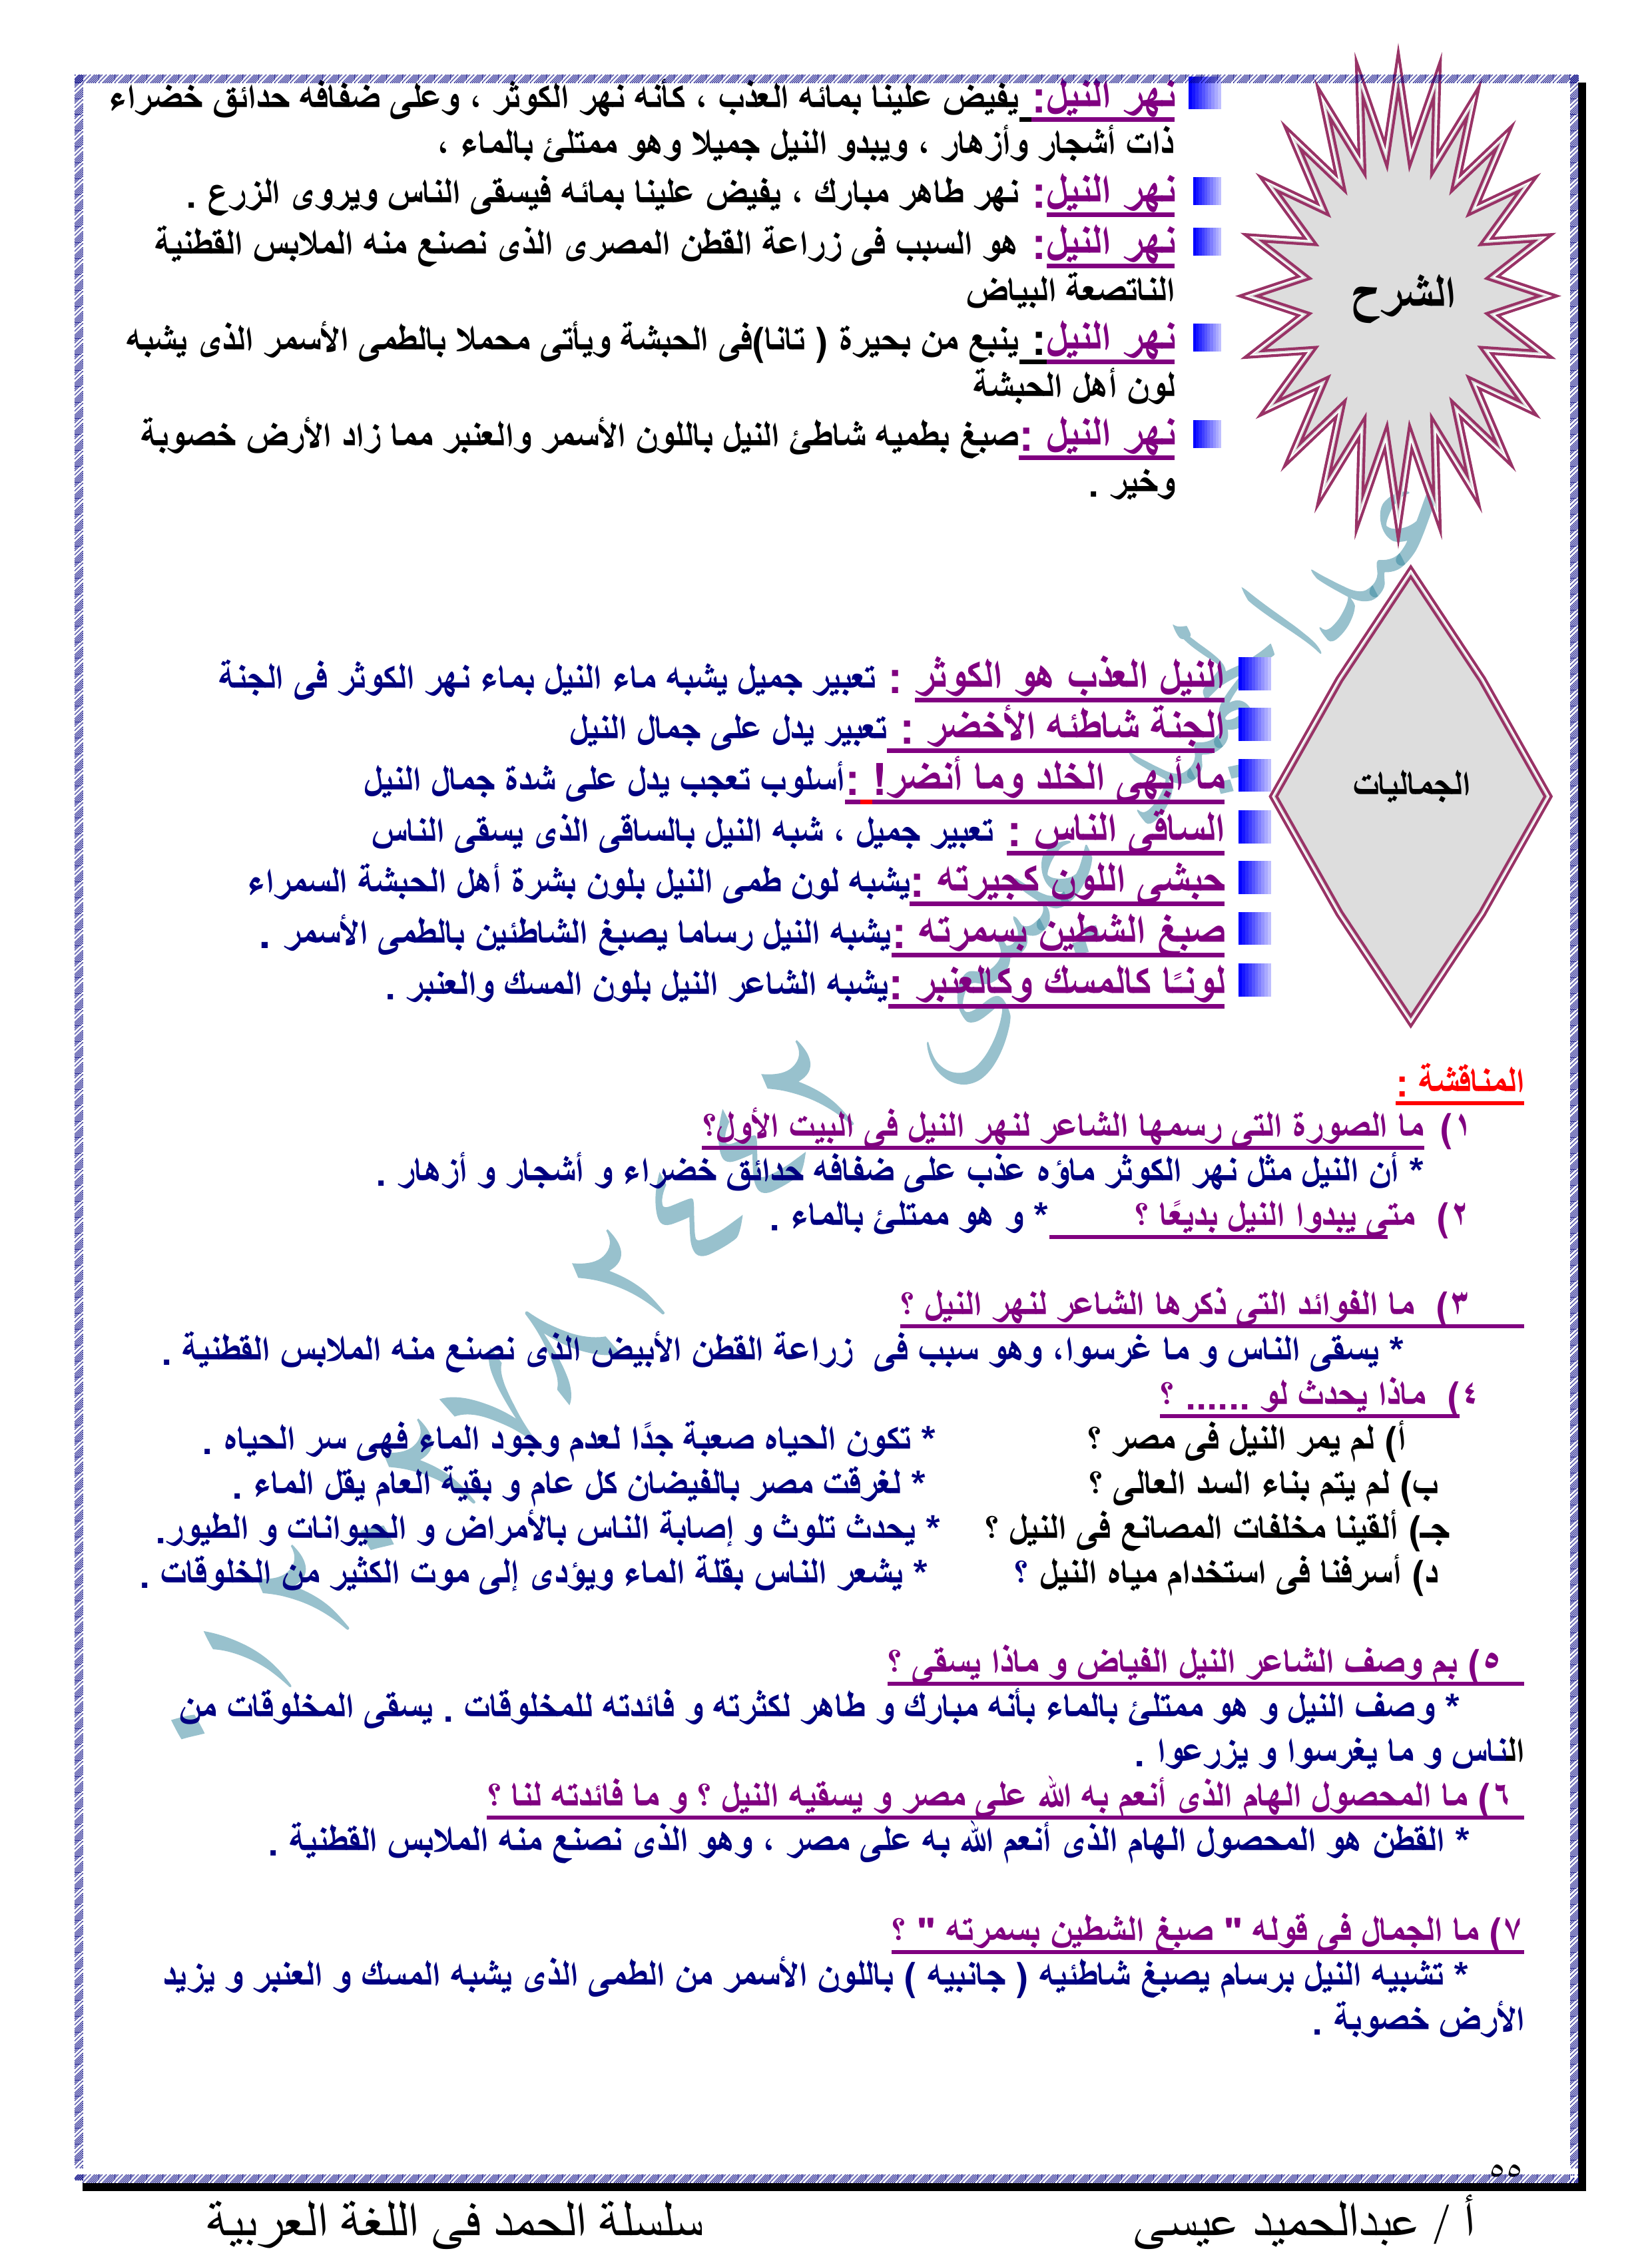 الشرح
نهر النيل: يفيض علينا بمائه العذب ، كأنه نهر الكوثر ، وعلى ضفافه حدائق خضراء
ذات أشجار وأزهار ، ويبدو النيل جميلا وهو ممتلئ بالماء ،
نهر النيل: نهر طاهر مبارك ، يفيض علينا بمائه فيسقى الناس ويروى الزرع .
نهر النيل: هو السبب فى زراعة القطن المصرى الذى نصنع منه الملابس القطنية
الناتصعة البياض
نهر النيل: ينبع من بحيرة ( تانا)فى الحبشة ويأتى محملا بالطمى الأسمر الذى يشبه
لون أهل الحبشة
نهر النيل :صبغ بطميه شاطئ النيل باللون الأسمر والعنبر مما زاد الأرض خصوبة
وخير .
الجماليات
النيل العذب هو الكوثر : تعبير جميل يشبه ماء النيل بماء نهر الكوثر فى الجنة
الجنة شاطئه الأخضر : تعبير يدل على جمال النيل
ما أبهى الخلد وما أنضر! :أسلوب تعجب يدل على شدة جمال النيل
الساقى الناس : تعبير جميل ، شبه النيل بالساقى الذى يسقى الناس
حبشى اللون كجيرته :يشبه لون طمى النيل بلون بشرة أهل الحبشة السمراء
صبغ الشطين بسمرته :يشبه النيل رساما يصبغ الشاطئين بالطمى الأسمر .
لونـًا كالمسك وكالعنبر :يشبه الشاعر النيل بلون المسك والعنبر .
المناقشة :
١) ما الصورة التى رسمها الشاعر لنهر النيل فى البيت الأول؟
* أن النيل مثل نهر الكوثر ماؤه عذب على ضفافه حدائق خضراء و أشجار و أزهار .
٢) متى يبدوا النيل بديعًا ؟ * و هو ممتلئ بالماء .
٣) ما الفوائد التى ذكرها الشاعر لنهر النيل ؟
* يسقى الناس و ما غرسوا، وهو سبب فى زراعة القطن الأبيض الذى نصنع منه الملابس القطنية .
٤) ماذا يحدث لو ...... ؟
أ) لم يمر النيل فى مصر ؟ * تكون الحياه صعبة جدًا لعدم وجود الماء فهى سر الحياه .
ب) لم يتم بناء السد العالى ؟ * لغرقت مصر بالفيضان كل عام و بقية العام يقل الماء .
جـ) ألقينا مخلفات المصانع فى النيل ؟ * يحدث تلوث و إصابة الناس بالأمراض و الحيوانات و الطيور.
د) أسرفنا فى استخدام مياه النيل ؟ * يشعر الناس بقلة الماء ويؤدى إلى موت الكثير من الخلوقات .
٥) بم وصف الشاعر النيل الفياض و ماذا يسقى ؟
* وصف النيل و هو ممتلئ بالماء بأنه مبارك و طاهر لكثرته و فائدته للمخلوقات . يسقى المخلوقات من
الناس و ما يغرسوا و يزرعوا .
٦) ما المحصول الهام الذى أنعم به الله على مصر و يسقيه النيل ؟ و ما فائدته لنا ؟
* القطن هو المحصول الهام الذى أنعم الله به على مصر ، وهو الذى نصنع منه الملابس القطنية .
٧) ما الجمال فى قوله " صبغ الشطين بسمرته " ؟
* تشبيه النيل برسام يصبغ شاطئيه ( جانبيه ) باللون الأسمر من الطمى الذى يشبه المسك و العنبر و يزيد
الأرض خصوبة .
عبدالحميد عيسى ٠١٢٠٢٧٨٢٤٤٢
٥٥
أ / عبدالحميد عيسى سلسلة الحمد فى اللغة العربية